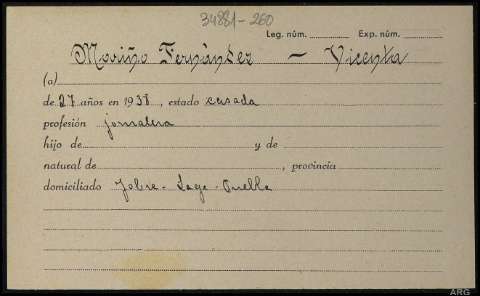 34881-260
Leg. núm. Exp. núm.
Mariño Fernández - Vicenta
(a)
de 27 años en 1938, estado casada
profesión jornalera
hijo de y de
natural de , provincia
domiciliado Jobre - Lage - Puebla
ARG